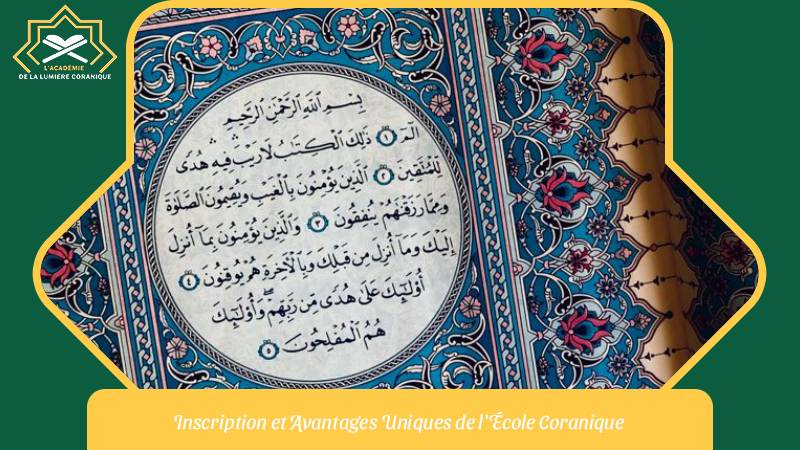 L'ACADÉMIE
DE LA LUMIÈRE CORANIQUE
بِسْمِ ٱللَّهِ ٱلرَّحْمَٰنِ ٱلرَّحِيمِ
الٓمٓ ١ ذَٰلِكَ ٱلْكِتَٰبُ لَا رَيْبَ فِيهِ هُدًى
لِّلْمُتَّقِينَ ٢ ٱلَّذِينَ يُؤْمِنُونَ بِٱلْغَيْبِ وَيُقِيمُونَ ٱلصَّلَوٰةَ
وَمِمَّا رَزَقْنَٰهُمْ يُنفِقُونَ ٣ وَٱلَّذِينَ يُؤْمِنُونَ بِمَآ أُنزِلَ
إِلَيْكَ وَمَآ أُنزِلَ مِن قَبْلِكَ وَبِٱلْءَاخِرَةِ هُمْ يُوقِنُونَ ٤
أُو۟لَٰٓئِكَ عَلَىٰ هُدًى مِّن رَّبِّهِمْ وَأُو۟لَٰٓئِكَ
هُمُ ٱلْمُفْلِحُونَ ٥
Inscription et Avantages Uniques de l'École Coranique